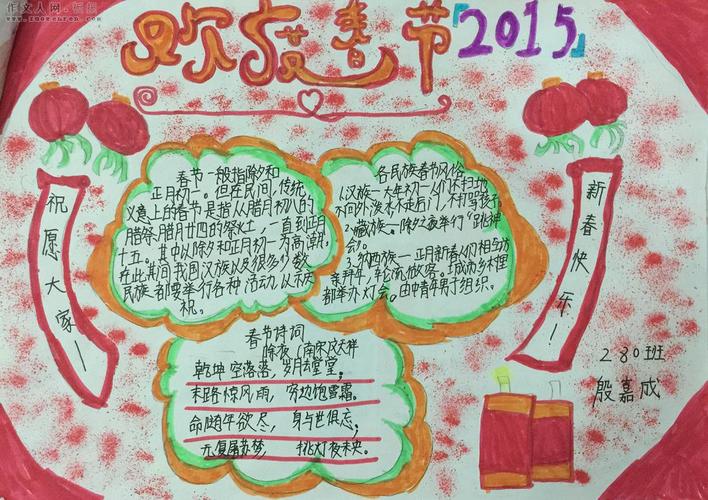 作文人网·板报
欢度春节『2015』
祝愿大家！
春节一般指除夕和
正月初一。但在民间,传统
义意上的春节是指从腊月初八的
腊祭腊月廿四的祭灶，一直到正月
十五。其中以除夕和正月初一为高潮,
在此其间我国汉族以及很多少数
民族都要举行各种活动以示庆
祝。
各民族春节风俗
汉族一大年初一人们不扫地
不向外泼水不走后门，不打骂孩子。
藏族一除夕夜举行“跳神
会”。
纳西族一正月新春人们相
亲拜年，轮流做客。城市乡村里
都举办灯会。由中青年男子组织。
新春快乐！
春节诗词
除夜（南宋）文天祥
乾坤空落落，岁月去堂堂。
末路惊风雨，穷边饱雪霜。
命随年欲尽，身与世俱忘。
无复屠苏梦，挑灯夜未央。
280班
殷嘉成